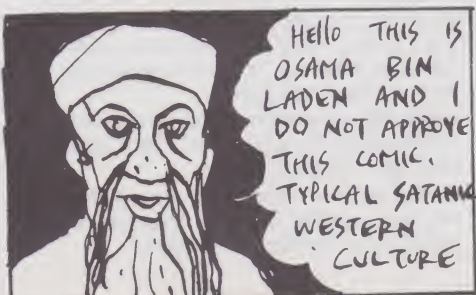 Hello THIS IS
OSAMA BIN
LADEN AND I
DO NOT APPROVE
THIS COMIC.
TYPICAL SATANIC
WESTERN
CULTURE